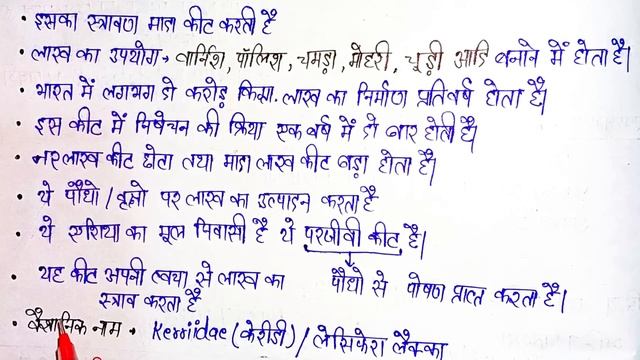 • इसका स्त्रावण मादा कीट करती है
• लाख का उपयोग → वार्निश, पॉलिश, चमड़ा, मोहरी, चूड़ी आदि बनाने में होता है।
• भारत में लगभग दो करोड़ किग्रा. लाख का निर्माण प्रतिवर्ष होता है।
• इस कीट में निषेचन की क्रिया एक वर्ष में दो बार होती है।
• नर लाख कीट छोटा तथा मादा लाख कीट बड़ा होता है।
• ये पौधो / वृक्षो पर लाख का उत्पादन करता है
• ये एशिया का मूल निवासी है ये परजीवी कीट है।
• यह कीट अपनी त्वचा से लाख का स्त्राव करता है
पौधो से पोषण प्राप्त करता है।
• वैज्ञानिक नाम • Kerriidae (केरीडी) / लेसिफेरा लैक्का